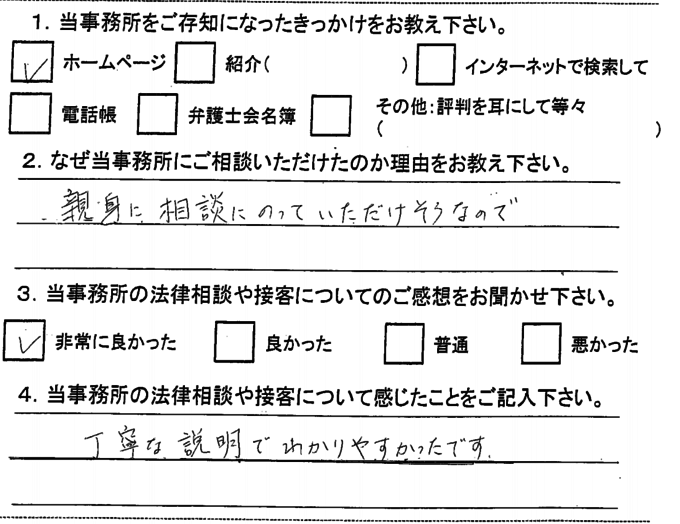 1. 当事務所をご存知になったきっかけをお教え下さい。
☑ ホームページ □ 紹介( ) □ インターネットで検索して
□ 電話帳 □ 弁護士会名簿 □ その他:評判を耳にして等々
( )
2. なぜ当事務所にご相談いただけたのか理由をお教え下さい。
親身に相談にのっていただけそうなので
3. 当事務所の法律相談や接客についてのご感想をお聞かせ下さい。
☑ 非常に良かった □ 良かった □ 普通 □ 悪かった
4. 当事務所の法律相談や接客について感じたことをご記入下さい。
丁寧な説明でわかりやすかったです.